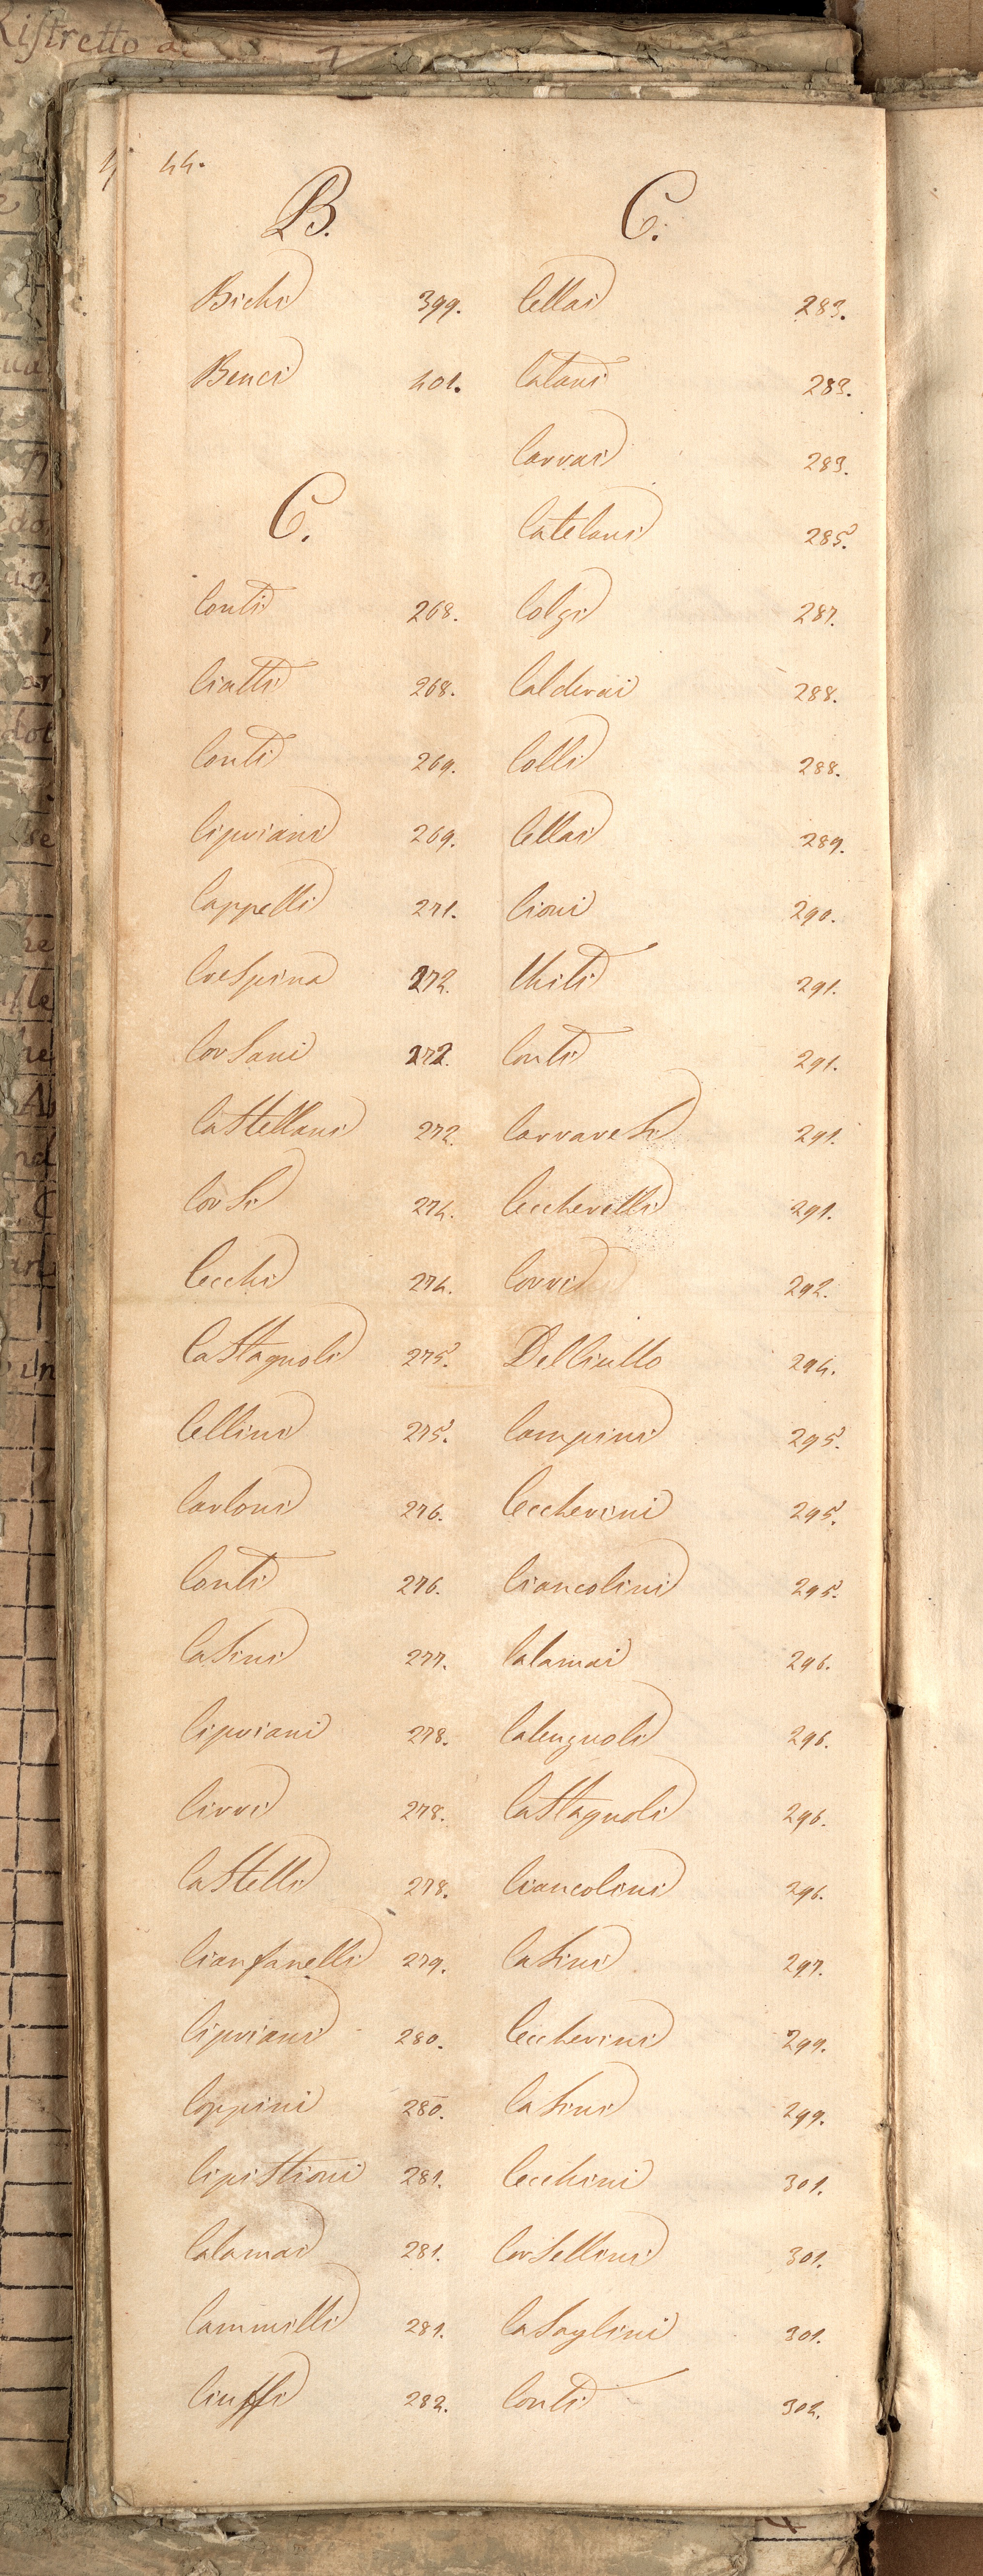 Ristretto
44.
B.
Bichi 399.
Benci 401.
C.
Conti 268.
Ciatti 268.
Conti 269.
Cipriani 269.
Cappelli 271.
Crespina 272.
Corsani 272.
Castellani 272.
Corsi 274.
Cecchi 274.
Castagnoli 275.
Cellini 275.
Carloni 276.
Conti 276.
Casini 277.
Cipriani 278.
Cirri 278.
Castelli 278.
Cianfanelli 279.
Cipriani 280.
Coppini 280.
Cipistioni 281.
Calamai 281.
Cammilli 281.
Ciuffi 282.
C.
Cellai 283.
Catani 283.
Carrai 283.
Catelani 285.
Colzi 287.
Calderai 288.
Colli 288.
Cellai 289.
Cioni 290.
Chiti 291.
Conti 291.
Carraresi 291.
Ceccherelli 291.
Corri 292.
Del Ciullo 294.
Campini 295.
Ceccherini 295.
Ciancolini 295.
Calamai 296.
Calugnoli 296.
Castagnoli 296.
Ciancolini 296.
Casini 297.
Ceccherini 299.
Casini 299.
Cecchini 301.
Corsellini 301.
Casaglini 301.
Conti 302.